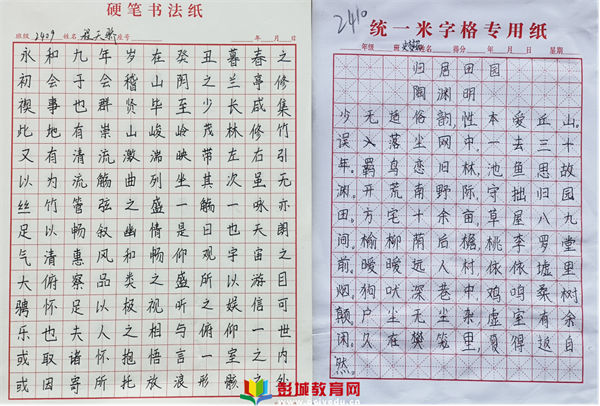 硬笔书法纸
班级 2409 姓名 天 座号 年 月 日
永和九年岁在癸丑暮春之
初会于会稽山阴之兰亭修
禊事也群贤毕至少长咸集
此地有崇山峻岭茂林修竹
又有清流激湍映带左右引
以为流觞曲列坐其次虽无
丝竹管弦之盛一觞一咏亦
足以畅叙幽情是日也天朗
气清惠风和畅仰观宇宙之
大俯察品类之盛所以游目
骋怀足以极视听之娱信可
乐也夫人之相与俯仰一世
或取诸怀抱悟言一室之内
或因寄所托放浪形骸之外
2410
统一米字格专用纸
年级 班 姓名 得分 年 月 日 星期
归居田园
陶渊明
少无适俗韵,性本爱丘山。
误入落尘网中,一去三十
年。羁鸟恋旧林,池鱼思故
渊。开荒南野际,守拙归园
田。方宅十余亩,草屋八九
间。榆柳荫后檐,桃李罗堂
前。暧暧远人村,依依墟里
烟。狗吠深巷中,鸡鸣桑树
颠。户尘无尘杂,虚室有余
闲。久在樊笼里,复得返自
然。
彭城教育网